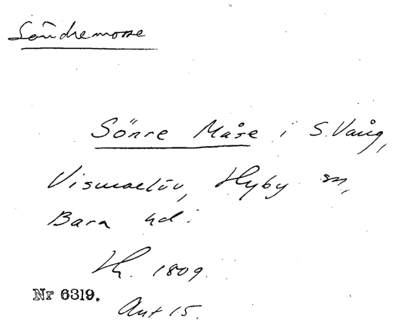 Söndremosse
Sönre Måse i S. Vång,
Vismarlöv, Hyby sn,
Bara hd.
Lh. 1809.
Nr 6319.
Akt 15.